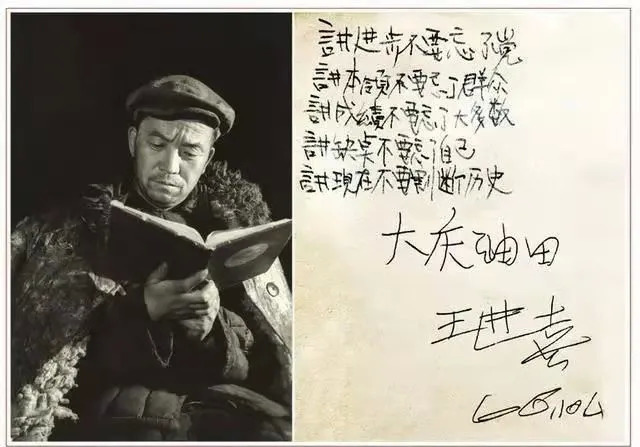 讲进步不要忘了党
讲本领不要忘了群众
讲成績不要忘了大多数
讲缺点不要忘了自己
讲現在不要割断历史
大庆油田
王进喜